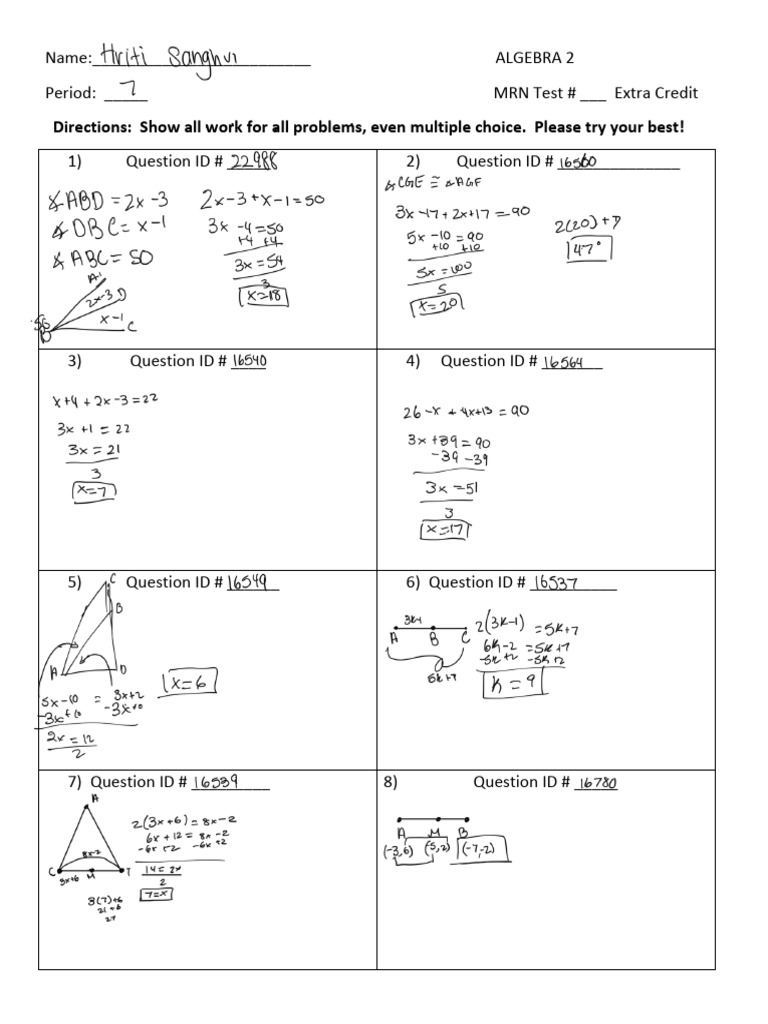 Name: Hriti Sanghvi ALGEBRA 2
Period: 7 MRN Test # ___ Extra Credit
Directions: Show all work for all problems, even multiple choice. Please try your best!
1) Question ID # 22988
∡ABD = 2x-3 2x-3+x-1=50
∡DBC = x-1 3x-4=50
+4 +4
∡ABC = 50 3x=54
3
x=18
A
2x-3 D
x-1
B C
2) Question ID # 16560
∡CGE ≅ ∡AGF
3x-17+2x+17=90
5x-10=90
+10 +10
5x=100
5
x=20
2(20)+7
47°
3) Question ID # 16540
x+4+2x-3=22
3x+1=22
3x=21
3
x=7
4) Question ID # 16564
26-x+4x+13=90
3x+39=90
-39 -39
3x=51
3
x=17
5) Question ID # 16549
C
B
A D
5x-10 = 3x+2
-3x+10 -3x+10
2x=12
2
x=6
6) Question ID # 16537
A B C
5k+7
2(3k-1) =5k+7
6k-2 =5k+7
-5k+2 -5k+2
k=9
7) Question ID # 16539
A
8x-2
C M T
3x+6
3(7)+6
21+6
27
2(3x+6)=8x-2
6x+12=8x-2
-6x+2 -6x+2
14=2x
2
7=x
8) Question ID # 16780
A M B
(-3,6) (-5,2) (-7,-2)